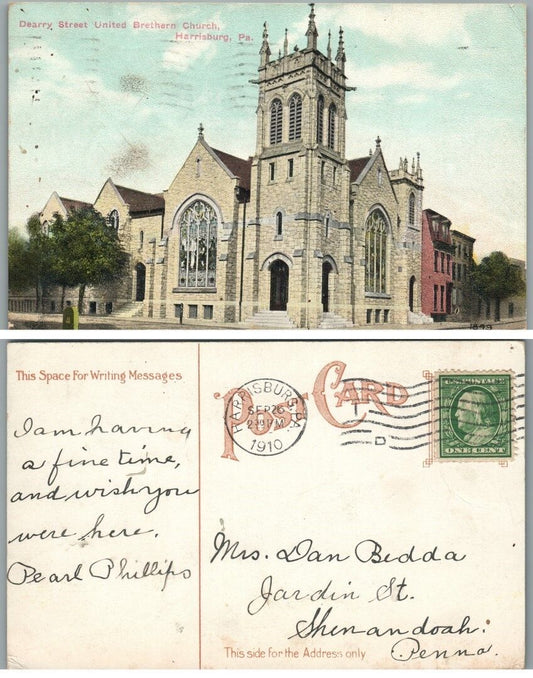 Dearry Street United Brethern Church,
Harrisburg, Pa.
1893
This Space For Writing Messages
POST CARD
HARRISBURG, PA.
SEP 26
2 30 PM
1910
D
U.S. POSTAGE
ONE CENT
I am having
a fine time,
and wish you
were here.
Pearl Phillips
Mrs. Dan Bedda
Jardin St.
Shenandoah.
Penna.
This side for the Address only